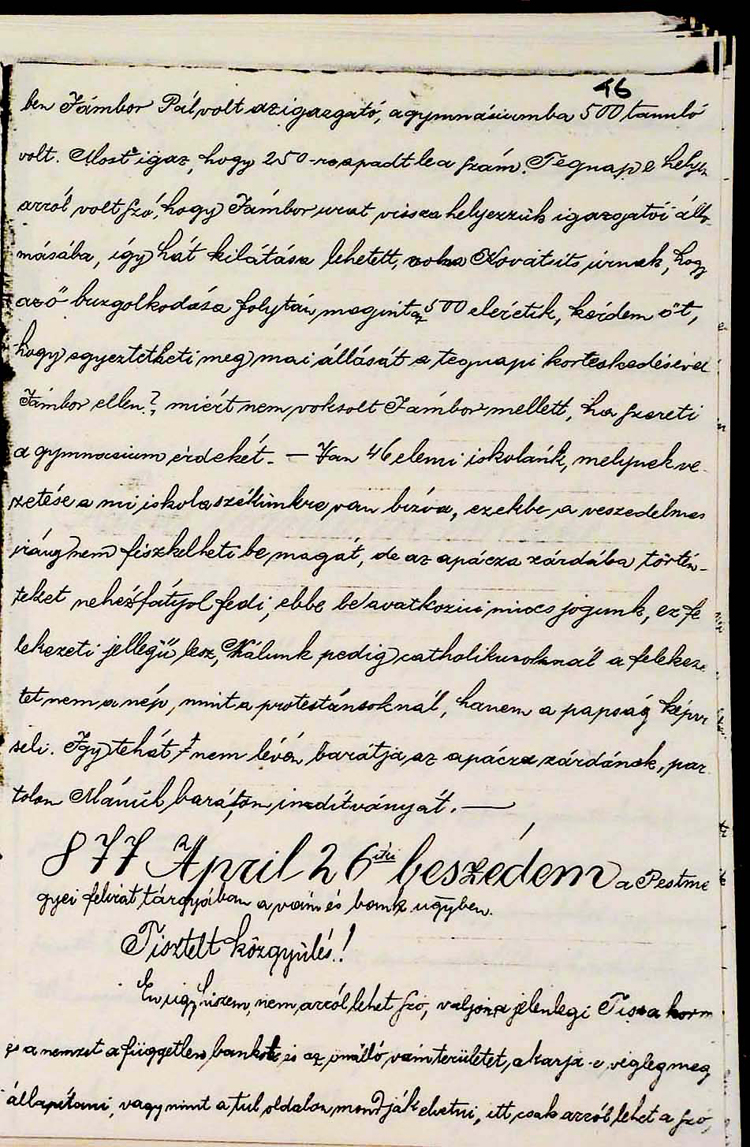 46
ben Jámbor Pál volt az igazgató, a gymnásiumba 500 tanuló
volt. Most igaz, hogy 250-re apadt le a szám. Tegnap e helyen
arról volt szó, hogy Jámbor urat vissza helyezzük igazgatói állo
másába, így hát kilátása lehetett, volna Kovátsits úrnak, hogy
az ő buzgolkodása folytán megint az 500 eléretik, kérdem őt,
hogy egyeztetheti meg mai állását a tegnapi korteskedésével
Jámbor ellen?, miért nem voksolt Jámbor mellett, ha szereti
a gymnasium érdekét. — Van 46 elemi iskolánk, melynek ve
zetése a mi iskolaszékünkre van bízva, ezekbe a veszedelmes
irány nem fészkelheti be magát, de az apácza zárdába történ-
teket nehéz fátyol fedi, ebbe beavatkozni nincs jogunk, ez fe
lekezeti jellegű lesz, Nálunk pedig catholikusoknál a feleke
tet nem a nép, mint a protestánsoknál, hanem a papság képvi
seli. Így tehát nem lévén barátja az apácza zárdának, pár
tolom Mánúk barátom inditványát. —
877 April 26iki beszédem a Pestme
gyei felirat tárgyában a vám és bank ügyben.
Tisztelt közgyülés!
Én úgy hiszem, nem arról lehet szó, valjon a jelenlegi Tisza korm
és a nemzet a független bankot és az önálló vámterületet, akarja-e végleg meg
állapítani, vagy mint a tul oldalon mondják elvetni, itt csak arról lehet a szó,